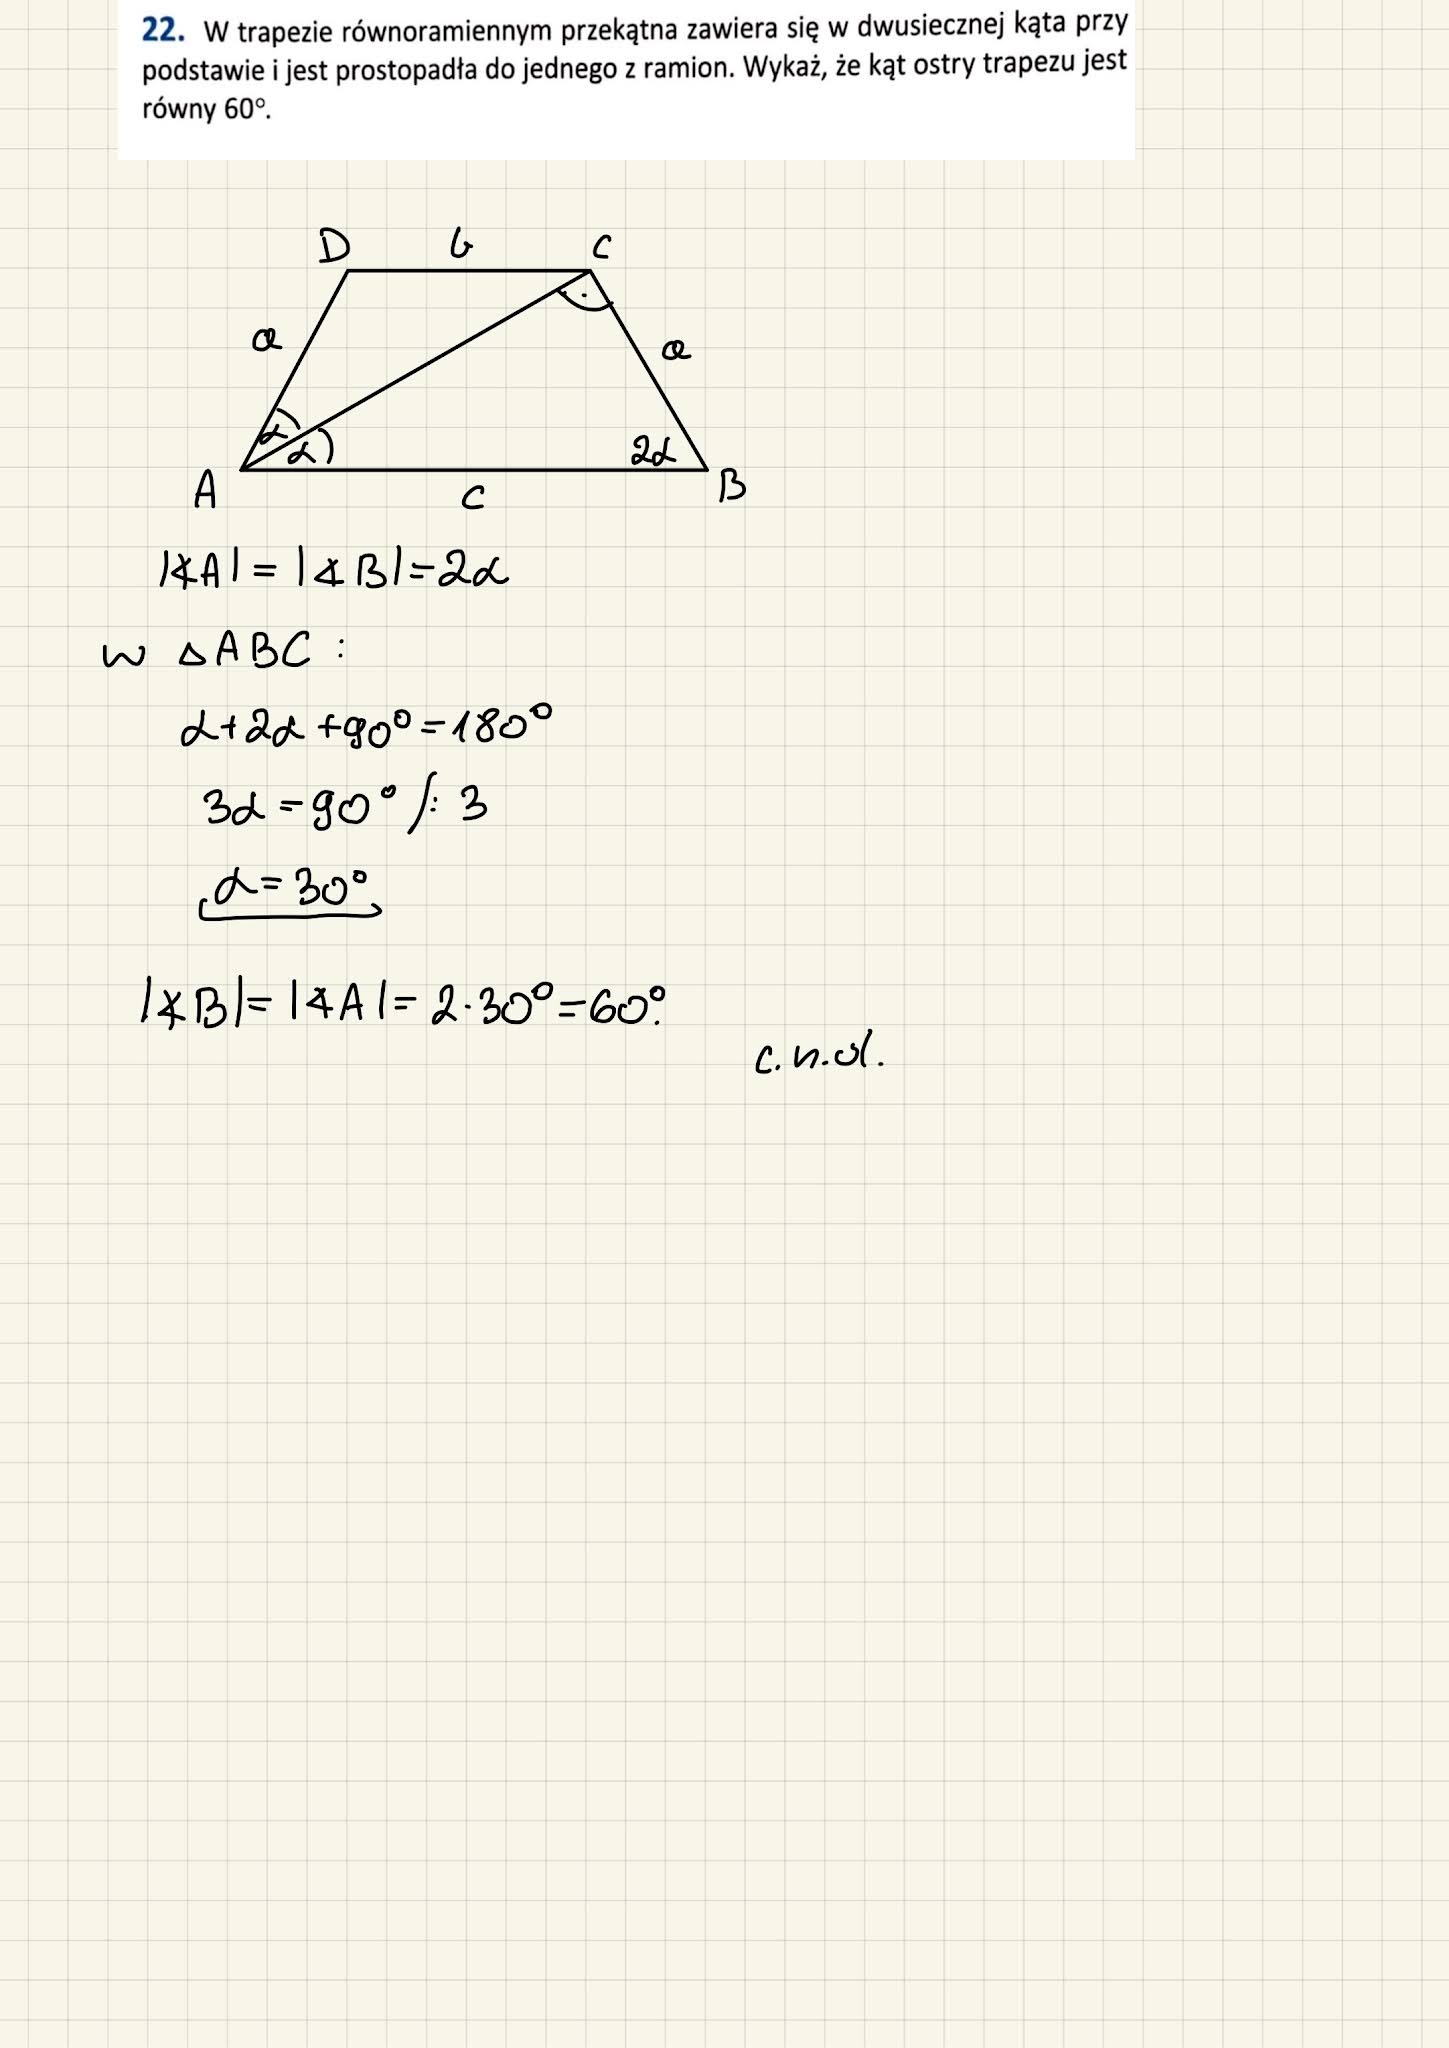 22. W trapezie równoramiennym przekątna zawiera się w dwusiecznej kąta przy
podstawie i jest prostopadła do jednego z ramion. Wykaż, że kąt ostry trapezu jest
równy 60°.
D b C
a a
α α 2α
A c B
|∢A| = |∢B| = 2α
w △ABC :
α+2α+90°=180°
3α=90° /: 3
α=30°
|∢B|=|∢A|= 2·30°=60°.
c.n.d.